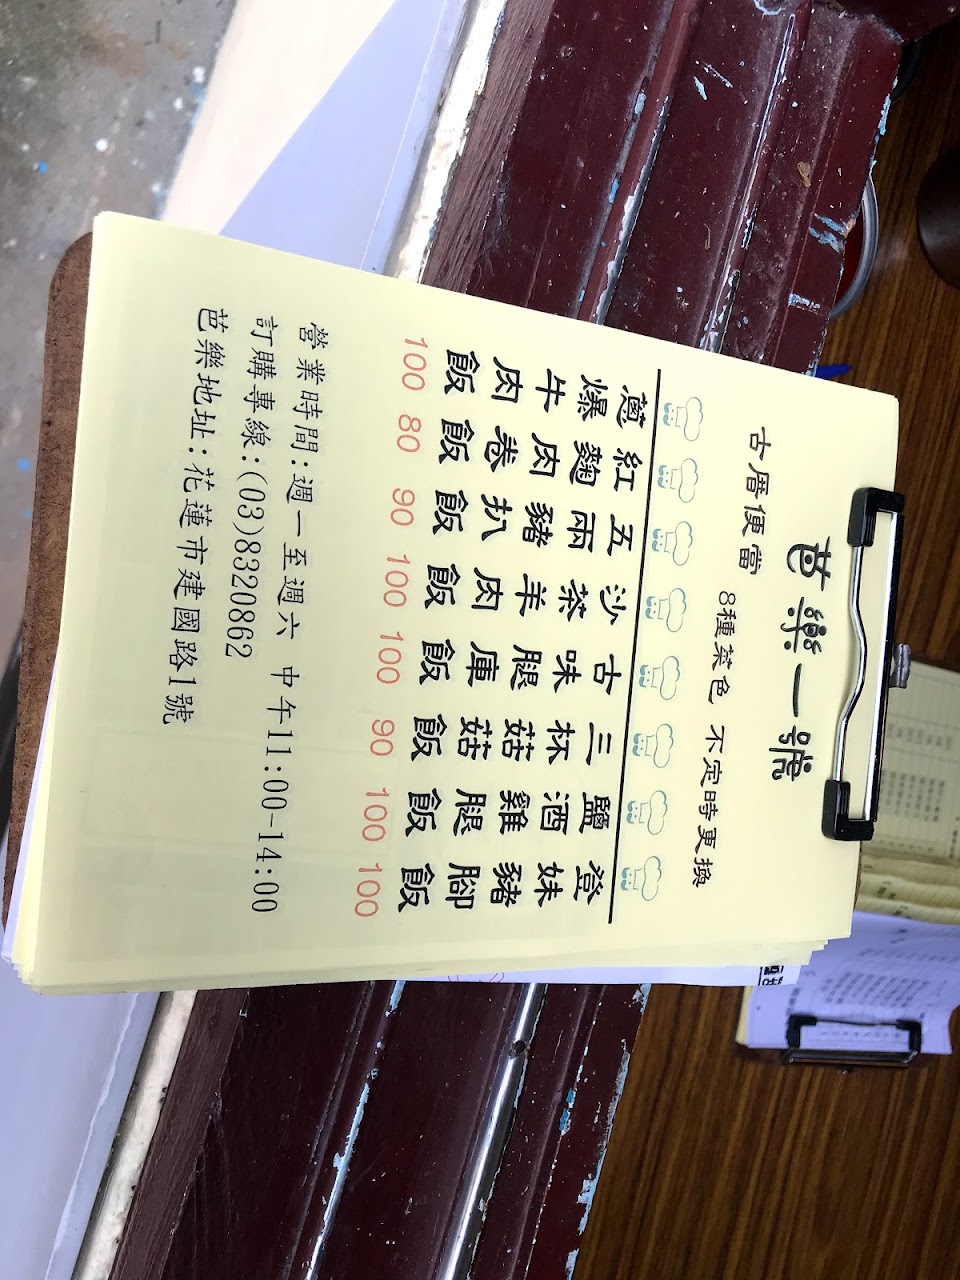 芭樂一號
古厝便當 8種菜色 不定時更換
蔥爆牛肉飯 100
紅麴肉卷飯 80
五兩豬扒飯 90
沙茶羊肉飯 100
古味腿庫飯 100
三杯菇菇飯 90
鹽酒雞腿飯 100
登妹豬腳飯 100
營業時間:週一至週六 中午11:00-14:00
訂購專線:(03)8320862
芭樂地址:花蓮市建國路1號